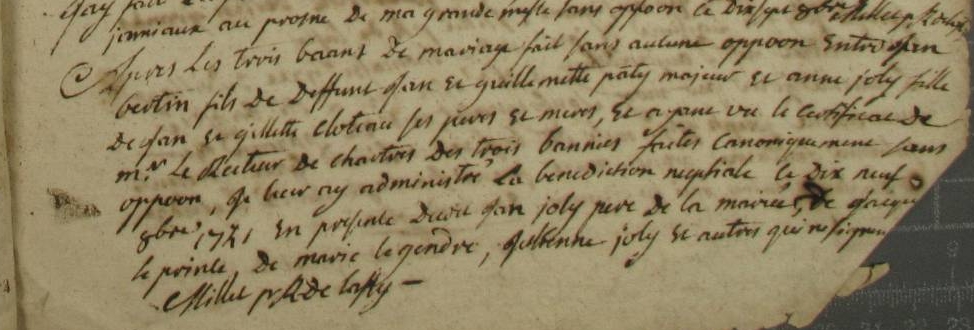 janviaux au prosne de ma grande messe sans oppoon ce dix sept 8bre Millet p. Rect.
Apres Les trois baans De mariage fait sans aucune oppoon Entre Jan
bertin fils De Deffunt Jan Et guillemette paty majeur Et anne joly fille
De Jan Et gillette cloteau ses peres Et meres, Et ayant vu le Certificat De
mr. Le Recteur De chartres Des trois bannies faites Canoniquement sans
oppoon, Je leur ay administré La benediction nuptiale le Dix neuf
8bre 1721 En presence Dudit Jan joly pere De la mariée, De Jacqu
le prince, De marie le gendre, Estienne joly Et autres qui ne signen
Millet p. R De laffy